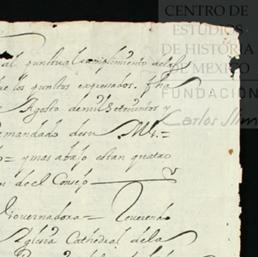 CENTRO DE
ESTUDIOS
DE HISTORIA
DE MEXICO
FUNDACIÓN
Carlos Slim
al puntual complimiento del
los puntos expresados. fha
Agosto de mil setecientos y
mandado de su Mg.=
= y mas abajo estan quatro
del Consejo
Governadora= Reverendo
Yglesia Cathedral de la